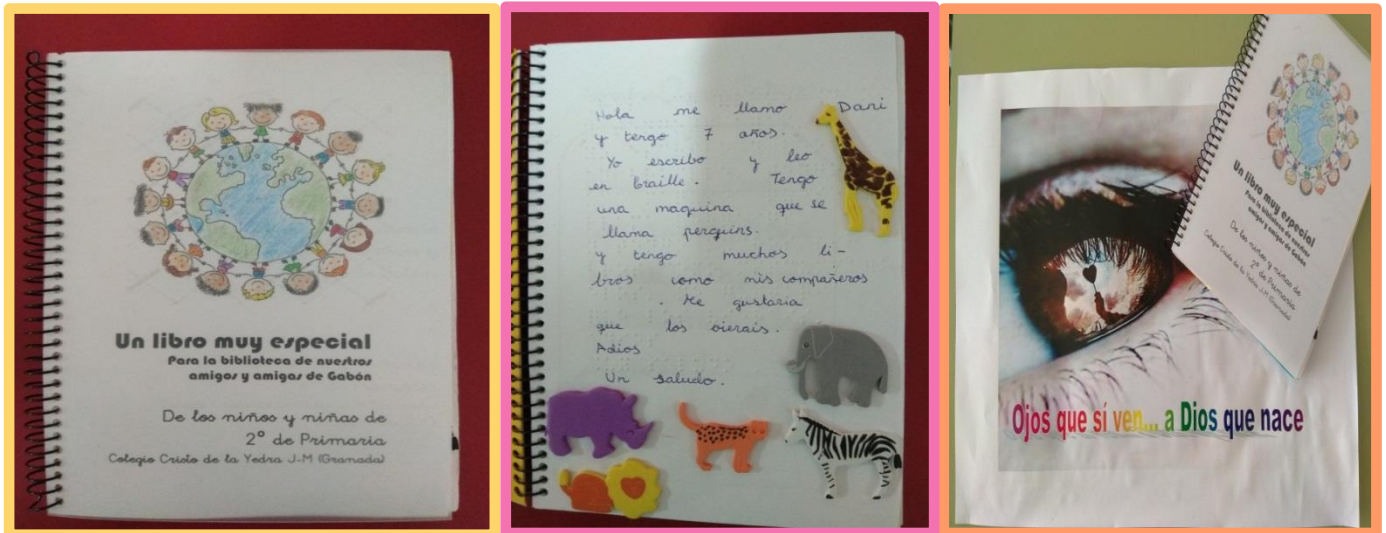 Un libro muy especial
Para la biblioteca de nuestros
amigos y amigas de Gabón
De los niños y niñas de
2º de Primaria
Colegio Cristo de la Yedra J-M (Granada)
Hola me llamo Dani
y tengo 7 años.
Yo escribo y leo
en braille. Tengo
una maquina que se
llama perquins.
y tengo muchos li-
bros como mis compañeros
. Me gustaria
que los vierais.
Adios
Un saludo.
Un libro muy especial
Para la biblioteca de nuestros
amigos y amigas de Gabón
De los niños y niñas de
2º de Primaria
Colegio Cristo de la Yedra J-M (Granada)
Ojos que sí ven... a Dios que nace